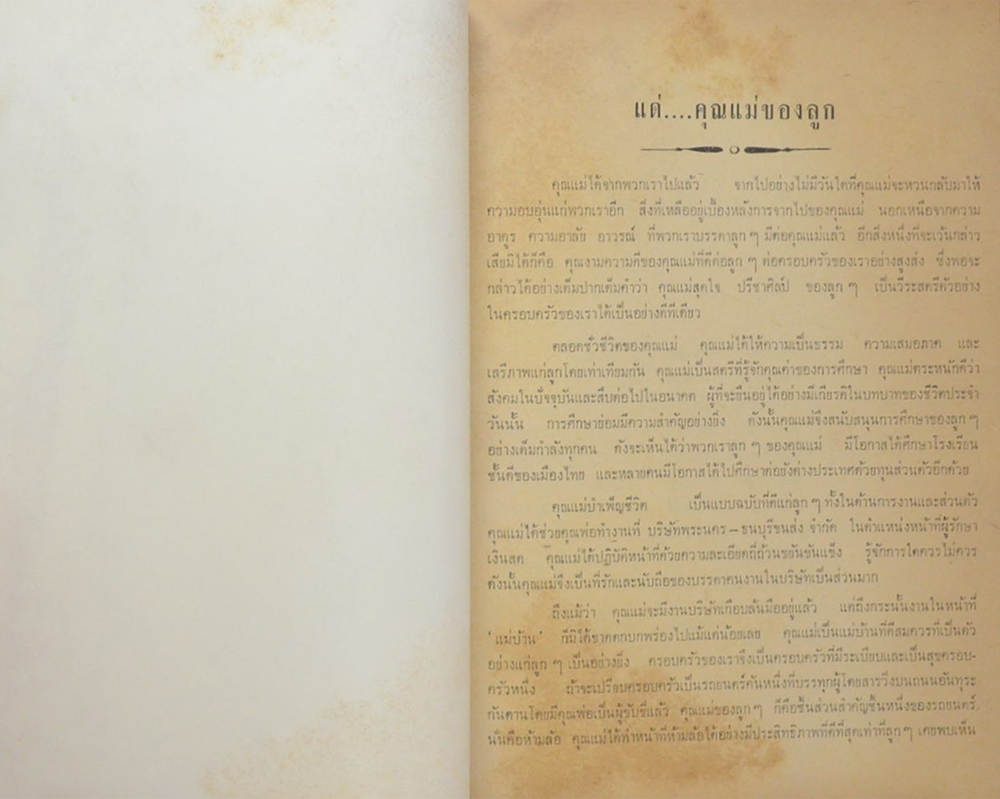 แด่....คุณแม่ของลูก
คุณแม่ได้จากพวกเราไปแล้ว จากไปอย่างไม่มีวันใดที่คุณแม่จะหวนกลับมาให้
ความอบอุ่นแก่พวกเราอีก สิ่งที่เหลืออยู่เบื้องหลังการจากไปของคุณแม่ นอกเหนือจากความ
อาดูร ความอาลัย อาวรณ์ ที่พวกเราบรรดาลูก ๆ มีต่อคุณแม่แล้ว อีกสิ่งหนึ่งที่จะเว้นกล่าว
เสียมิได้ก็คือ คุณงามความดีของคุณแม่ที่ดีต่อลูก ๆ ต่อครอบครัวของเราอย่างสูงส่ง ซึ่งพอจะ
กล่าวได้อย่างเต็มปากเต็มคำว่า คุณแม่สุดใจ ปรีชาศิลป์ ของลูก ๆ เป็นวีระสตรีตัวอย่าง
ในครอบครัวของเราได้เป็นอย่างดีทีเดียว
ตลอดชั่วชีวิตของคุณแม่ คุณแม่ได้ให้ความเป็นธรรม ความเสมอภาค และ
เสรีภาพแก่ลูกโดยเท่าเทียมกัน คุณแม่เป็นสตรีที่รู้จักคุณค่าของการศึกษา คุณแม่ตระหนักดีว่า
สังคมในปัจจุบันและสืบต่อไปในอนาคต ผู้ที่จะยืนอยู่ได้อย่างมีเกียรติในบทบาทของชีวิตประจำ
วันนั้น การศึกษาย่อมมีความสำคัญอย่างยิ่ง ดังนั้นคุณแม่จึงสนับสนุนการศึกษาของลูก ๆ
อย่างเต็มกำลังทุกคน ดังจะเห็นได้ว่าพวกเราลูก ๆ ของคุณแม่ มีโอกาสได้ศึกษาโรงเรียน
ชั้นดีของเมืองไทย และหลายคนมีโอกาสได้ไปศึกษาต่อยังต่างประเทศด้วยทุนส่วนตัวอีกด้วย
คุณแม่บำเพ็ญชีวิต เป็นแบบฉบับที่ดีแก่ลูก ๆ ทั้งในด้านการงานและส่วนตัว
คุณแม่ได้ช่วยคุณพ่อทำงานที่ บริษัทพระนคร – ธนบุรีขนส่ง จำกัด ในตำแหน่งหน้าที่ผู้รักษา
เงินสด คุณแม่ได้ปฏิบัติหน้าที่ด้วยความละเอียดถี่ถ้วนขยันขันแข็ง รู้จักการใดควรไม่ควร
ดังนั้นคุณแม่จึงเป็นที่รักและนับถือของบรรดาคนงานในบริษัทเป็นส่วนมาก
ถึงแม้ว่า คุณแม่จะมีงานบริษัทเกือบล้นมืออยู่แล้ว แต่ถึงกระนั้นงานในหน้าที่
'แม่บ้าน' ก็มิได้ขาดตกบกพร่องไปแม้แต่น้อยเลย คุณแม่เป็นแม่บ้านที่ดีสมควรที่เป็นตัว
อย่างแก่ลูก ๆ เป็นอย่างยิ่ง ครอบครัวของเราจึงเป็นครอบครัวที่มีระเบียบและเป็นสุขครอบ-
ครัวหนึ่ง ถ้าจะเปรียบครอบครัวเป็นรถยนตร์คันหนึ่งที่บรรทุกผู้โดยสารวิ่งบนถนนอันทุระ
กันดานโดยมีคุณพ่อเป็นผู้ขับขี่แล้ว คุณแม่ของลูก ๆ ก็คือชิ้นส่วนสำคัญชิ้นหนึ่งของรถยนตร์.
นั่นคือห้ามล้อ คุณแม่ได้ทำหน้าที่ห้ามล้อได้อย่างมีประสิทธิภาพที่ดีที่สุดเท่าที่ลูก ๆ เคยพบเห็น